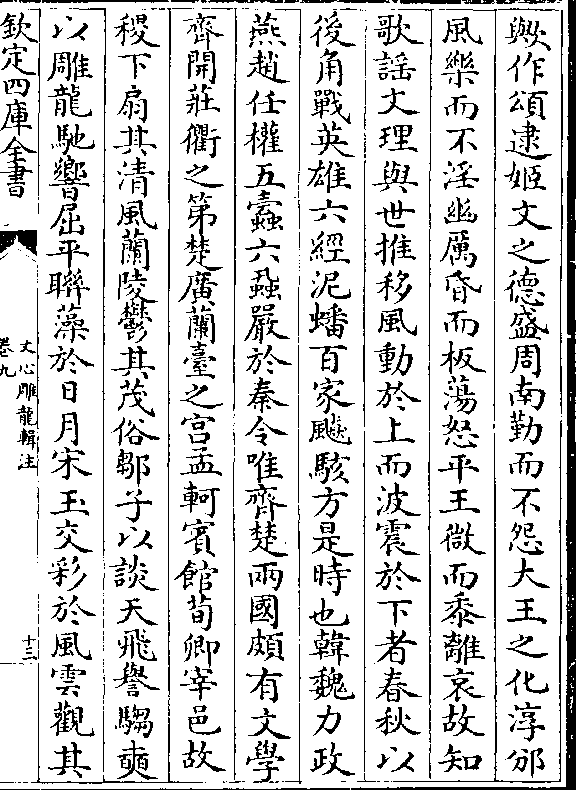 歟作頌逮姬文之德盛周南勤而不怨大王之化淳邠
風樂而不淫幽厲昏而板蕩怒平王微而黍離哀故知
歌謡文理與世推移風動於上而波震於下者春秋以
後角戰英雄六經泥蟠百家飈駭方是時也韓魏力政
燕趙任權五蠧六蝨嚴於秦令唯齊楚兩國頗有文學
齊開莊衢之第楚廣蘭臺之宫孟軻賓館荀卿宰邑故
稷下扇其清風蘭陵鬱其茂俗鄒子以談天飛譽騶奭
以雕龍馳響屈平聯藻於日月宋玉交彩於風雲觀其
欽定四庫全書
文心雕龍輯注
卷九
十三